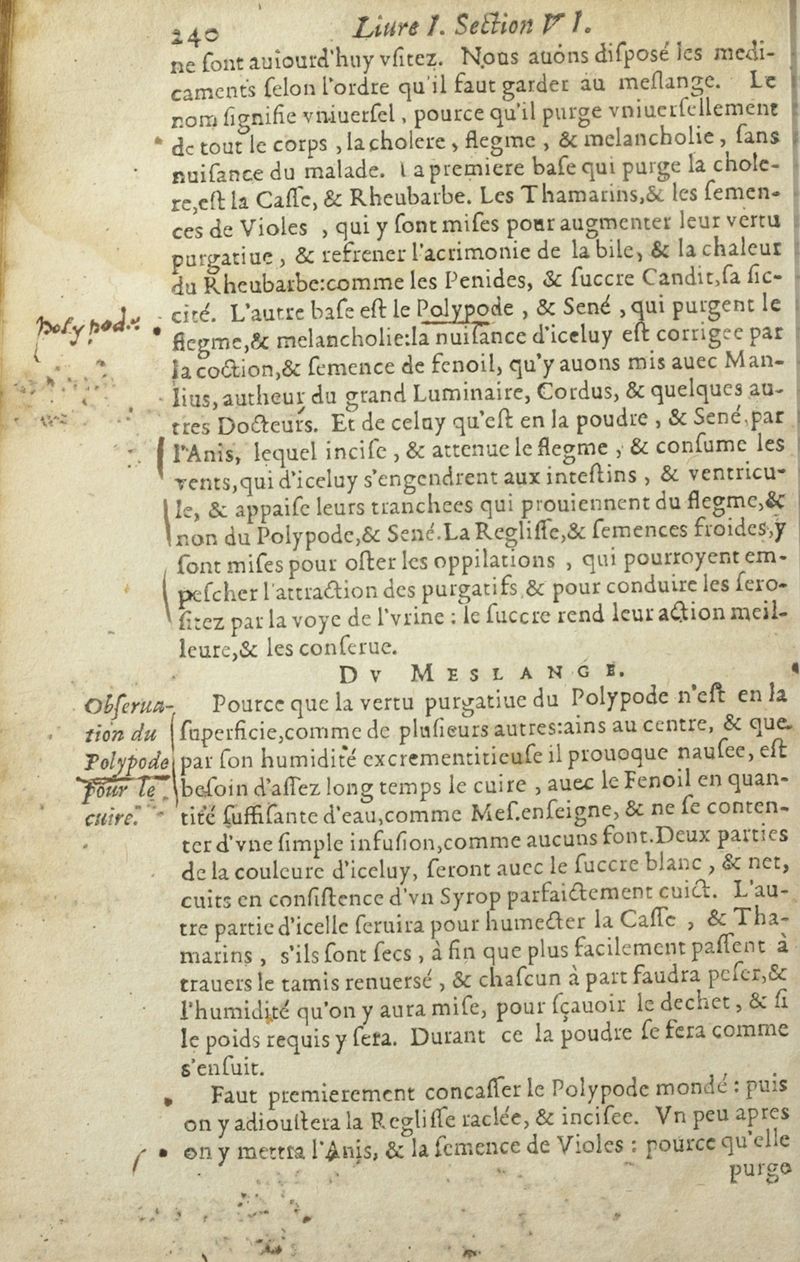 240 Liure I. Section VI.
ne sont auiourd'huy vsitez. Nous auons disposé les medi-
caments selon l'ordre qu'il faut garder au meslange. Le
nom signifie vniuersel, pource qu'il purge vniuersellement
* de tout le corps, la cholere, flegme, & melancholie, sans
nuisance du malade. La premiere base qui purge la chole-
re, est la Casse, & Rheubarbe. Les Thamarins, & les semen-
ces de Violes, qui y sont mises pour augmenter leur vertu
purgatiue, & refrener l'acrimonie de la bile, & la chaleur
du Rheubarbe: comme les Penides, & succre Candit, sa sic-
cité. L'autre base est le Polypode, & Sené, qui purgent le
polypode
flegme, & melancholie: la nuisance d'iceluy est corrigee par
la coction, & semence de fenoil, qu'y auons mis auec Man-
lius, autheur du grand Luminaire, Cordus, & quelques au-
tres Docteurs. Et de celuy qu'est en la poudre, & Sené, par
l'Anis, lequel incise, & attenue le flegme, & consume les
vents, qui d'iceluy s'engendrent aux intestins, & ventricu-
le, & appaise leurs tranchees qui prouiennent du flegme, &
non du Polypode, & Sené. La Reglisse, & semences froides, y
sont mises pour oster les oppilations, qui pourroyent em-
pescher l'attraction des purgatifs, & pour conduire les sero-
sitez par la voye de l'vrine: le succre rend leur action meil-
leure, & les conserue.
DV MESLANGE.
Obserua-
tion du
Polypode
pour le
cuire.
Pource que la vertu purgatiue du Polypode n'est en la
superficie, comme de plusieurs autres: ains au centre, & que
par son humidité excrementitieuse il prouoque nausee, est
besoin d'assez long temps le cuire, auec le Fenoil en quan-
tité suffisante d'eau, comme Mes. enseigne, & ne se conten-
ter d'vne simple infusion, comme aucuns font. Deux parties
de la couleure d'iceluy, seront auec le succre blanc, & net,
cuits en consistence d'vn Syrop parfaictement cuict. L'au-
tre partie d'icelle seruira pour humecter la Casse, & Tha-
marins, s'ils sont secs, à fin que plus facilement passent à
trauers le tamis renuersé, & chascun à part faudra peser, &
l'humidité qu'on y aura mise, pour sçauoir le dechet, & si
le poids requis y sera. Durant ce la poudre se fera comme
s'ensuit.
Faut premierement concasser le Polypode mondé: puis
on y adioustera la Reglisse raclée, & incisee. Vn peu apres
on y mettra l'Anis, & la semence de Violes: pource qu'elle
purge